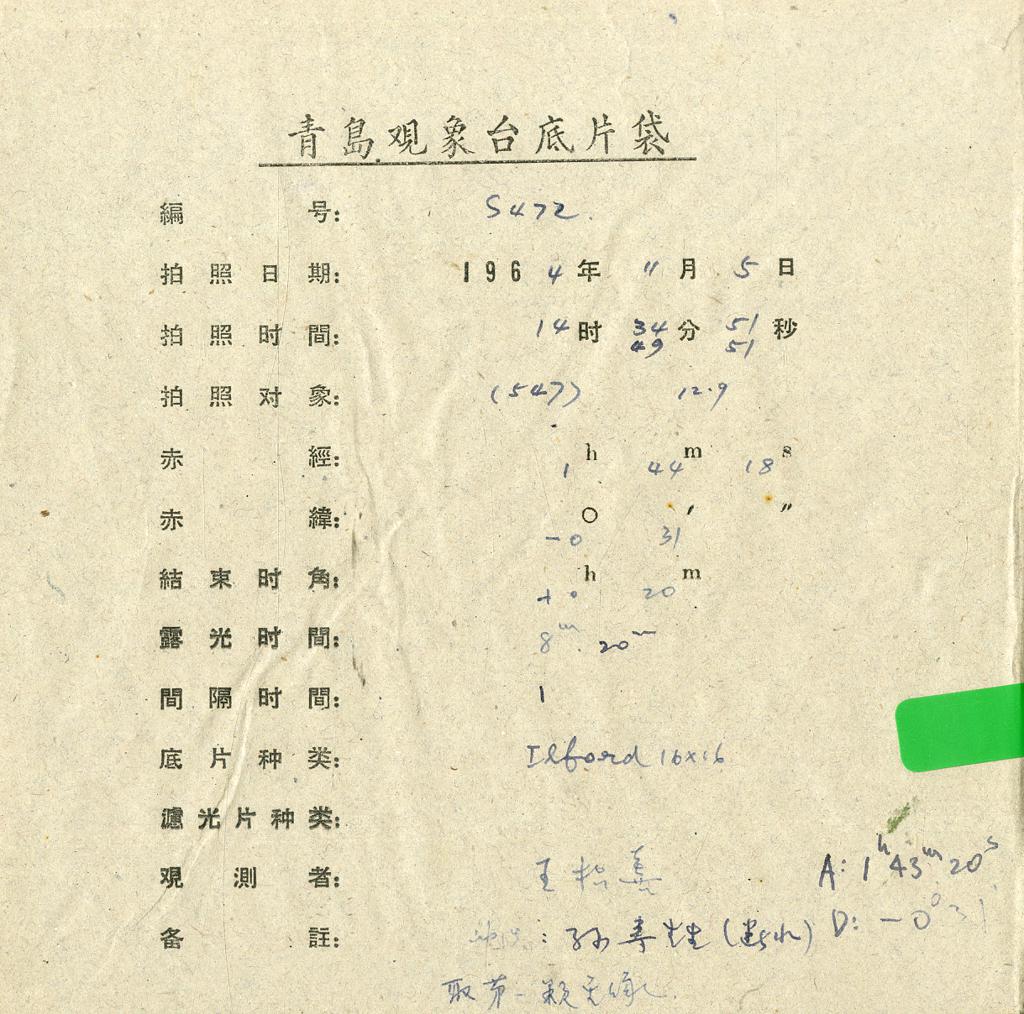 青島观象台底片袋
編号: S472.
拍照日期: 1964年 11月 5日
拍照时間: 14时 34分 51秒
49 51
拍照对象: (547) 12.9
赤經: 1h 44m 18s
赤緯: -0° 31′ ″
結束时角: +0h 20m
露光时間: 8m. 20m
間隔时間: 1
底片种类: Ilford 16x16
濾光片种类:
观測者: 王
A: 1h 43m 20s
备註: : 孙寿
D: -0° 31
取第一